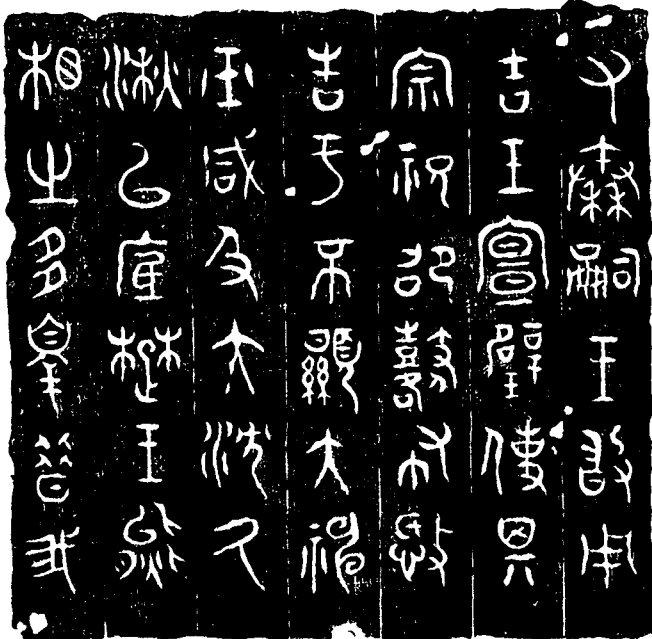 又秦嗣王敢用
吉玉宣璧使其
宗祝邵鼛布愍
告于不顯大神
巫咸及大沈久
湫以底楚王熊
相之多辠昔我